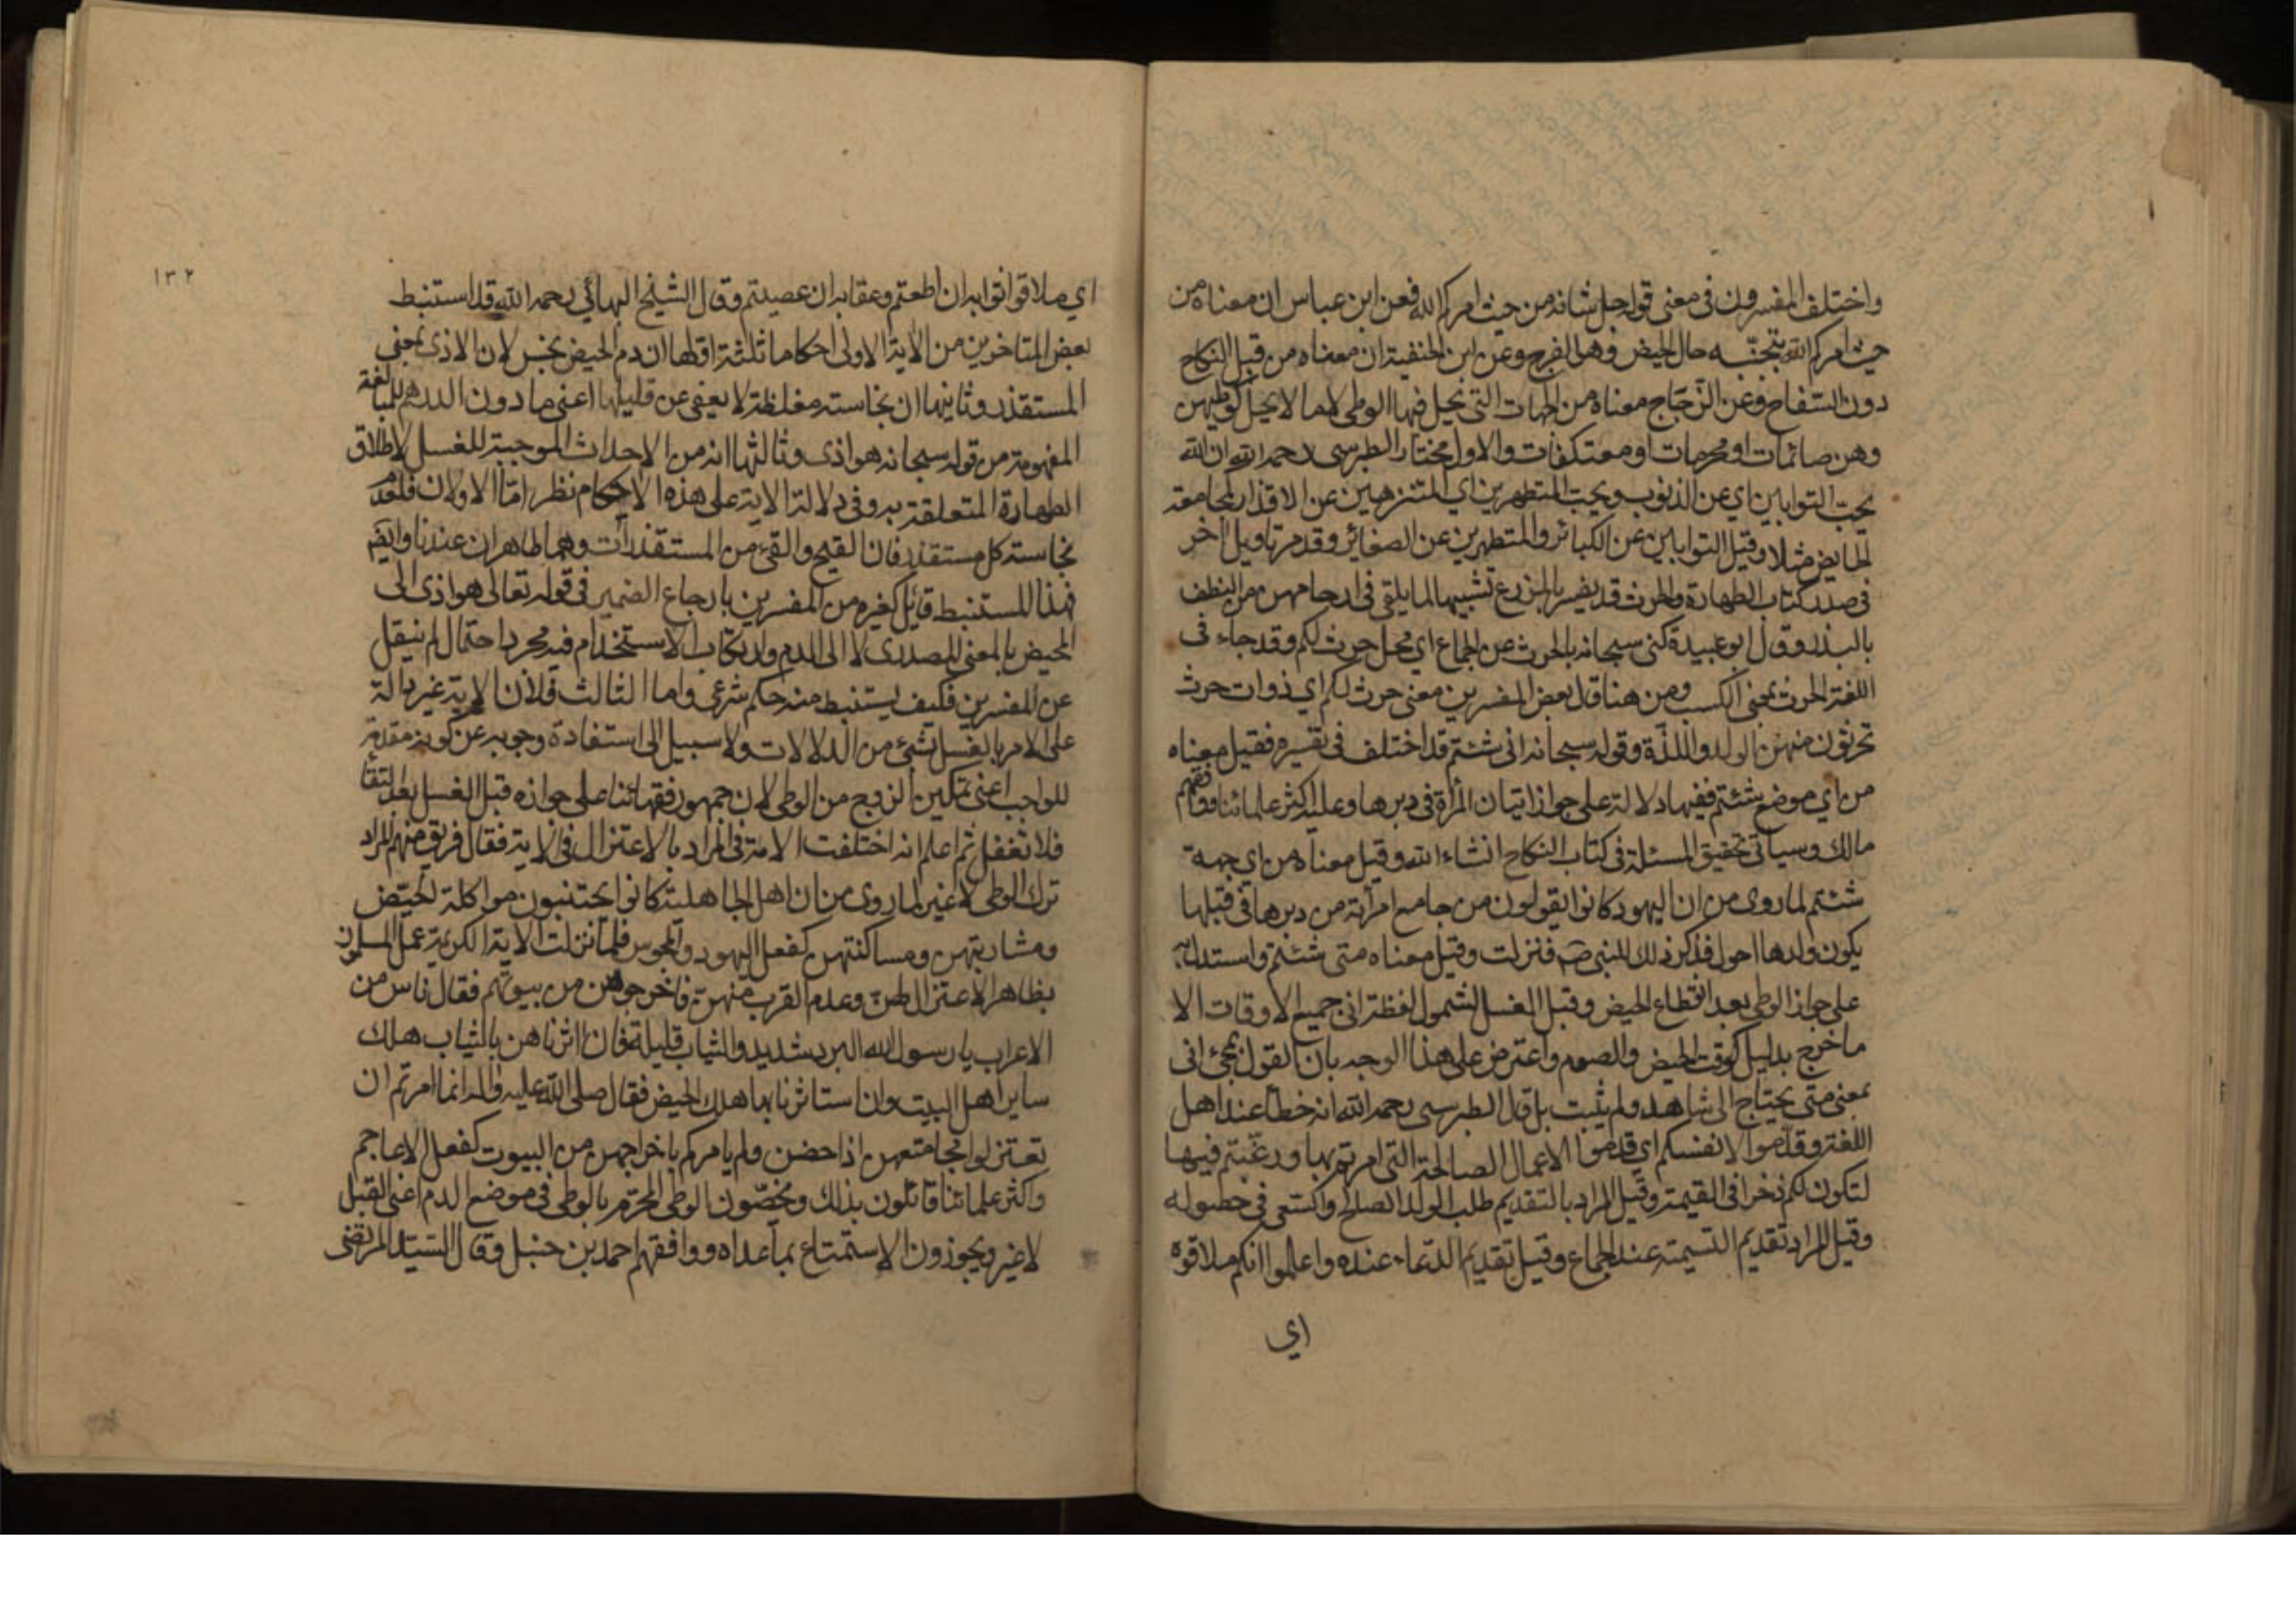 واختلف المفسرون فى معنى قوله جل شانه من حيث امركم الله فعن ابن عباس ان معناه من
حيث امركم الله بتجنبه حال الحيض وهو الفرج وعن ابن الحنفية ان معناه من قبل النكاح
دون السفاح وعن الزجاج معناه من الجهات التى يحل فيها الوطى لا ما لا يحل كوطيهن
وهن صائمات او محرمات او معتكفات والاول مختار الطبرسى رحمه الله ان الله
يحب التوابين اي عن الذنوب ويحب المتطهرين اي المتنزهين عن الاقذار كمجامعة
الحايض مثلا وقيل التوابين عن الكبائر والمتطهرين عن الصغائر وقد مر تاويل اخر
فى صدر كتاب الطهارة والحرث قد يفسر بالمزرع تشبيها لما يلقى فى ارحامهن من النطف
بالبذر وقال ابو عبيدة كنى سبحانه بالحرث عن الجماع اي محل حرث لكم وقد جاء فى
اللغة الحرث بمعنى الكسب ومن هنا قال بعض المفسرين معنى حرث لكم اي ذوات حرث
تحرثون منهن الولد واللذة وقوله سبحانه انى شئتم قد اختلف فى تفسيره فقيل معناه
من اي موضع شئتم ففيها دلالة على جواز اتيان المرأة فى دبرها وعليه اكثر علمائنا ووافقهم
مالك وسياتى تحقيق المسئلة فى كتاب النكاح انشاء الله وقيل معناه من اى جهة
شئتم لما روى من ان اليهود كانوا يقولون من جامع امرأته من دبرها فى قبلها
يكون ولدها احول فذكر ذلك للنبى صم فنزلت وقيل معناه متى شئتم واستدل به
على جواز الوطى بعد انقطاع الحيض وقبل الغسل لشمول لفظة انى جميع الاوقات الا
ما خرج بدليل كوقت الحيض والصوم واعترض على هذا الوجه بان القول بمجئ انى
بمعنى متى يحتاج الى شاهد ولم يثبت بل قال الطبرسى رحمه الله انه خطأ عند اهل
اللغة وقدموا لانفسكم اي قدموا الاعمال الصالحة التى امرتم بها ورغبتم فيها
لتكون لكم ذخرا فى القيمة وقيل المراد بالتقديم طلب الولد الصلح والسعى فى حصوله
وقيل المراد تقديم التسيمة عند الجماع وقيل تقديم الدعاء عنده واعلموا انكم ملاقوه
اي
١٣٢
اي ملاقوا ثوابه ان اطعتم وعقابه ان عصيتم وقال الشيخ البهائي رحمه الله قد استنبط
بعض المتاخرين من الآية الاولى احكاما ثلثة اولها ان دم الحيض نجس لان الاذى بمعنى
المستقذر وثانيها ان نجاسته مغلظة لا يعفى عن قليلها اعنى ما دون الدرهم للمبالغة
المفهومة من قوله سبحانه هو اذى وثالثها انه من الاحداث الموجبة للغسل لاطلاق
الطهارة المتعلقة به وفى دلالة الاية على هذه الاحكام نظر اما الاولان فلعدم
نجاسته كل مستقذر فان القيح والقئ من المستقذرات وهما طاهران عندنا وايضم
فهذا المستنبط قائل كغيره من المفسرين بارجاع الضمير فى قوله تعالى هو اذى الى
المحيض بالمعنى المصدرى لا الى الدم وارتكاب الاستخدام فيه مجرد احتمال لم ينقل
عن المفسرين فكيف يستنبط منه حكم شرعى واما الثالث فلان الاية غير دالة
على الامر بالغسل بشئ من الدلالات ولا سبيل الى استفادة وجوبه عن كونه مقدمة
للواجب اعنى تمكين الزوج من الوطى لان جمهور فقهائنا على جوازه قبل الغسل بعد النقا
فلا تغفل ثم اعلم انه اختلفت الامة فى المراد بالاعتزال فى الاية فقال فريق منهم المراد
ترك الوطى لا غير لما روى من ان اهل الجاهلية كانوا يجتنبون مواكلة الحيض
ومشاربتهن ومساكنتهن كفعل اليهود والمجوس فلما نزلت الاية الكريمة عمل المسلمون
بظاهر الاعتزال لهن وعدم القرب منهن فاخرجوهن من بيوتهم فقال ناس من
الاعراب يا رسول الله البرد شديد والثياب قليلة فان اثرناهن بالثياب هلك
ساير اهل البيت وان استاثرنا بها هلك الحيض فقال صلى الله عليه واله انما امرتم ان
تعتزلوا مجامعتهن اذا حضن ولم يامركم باخراجهن من البيوت كفعل الاعاجم
واكثر علمائنا قائلون بذلك ومخصون الوطى المحرم بالوطى فى موضع الدم اعنى القبل
لا غير ويجوزون الاستمتاع بما عداه ووافقهم احمد بن حنبل وقال السيد المرتضى